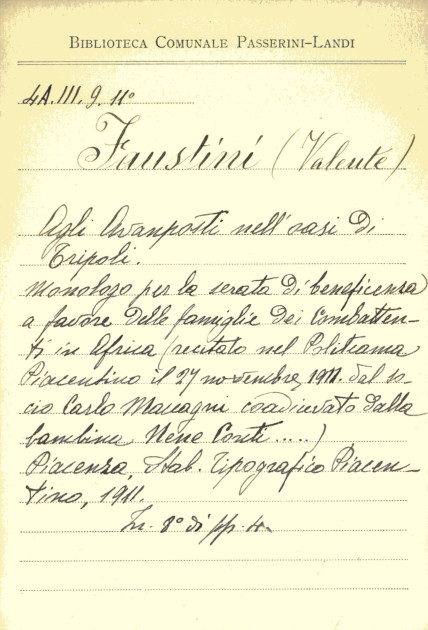 BIBLIOTECA COMUNALE PASSERINI-LANDI
4A.III.9.11°
Faustini (Valente)
Agli Avanposti nell'oasi di
Tripoli.
Monologo per la serata di beneficenza
a favore delle famiglie dei Combatten-
ti in Africa (recitato nel Politeama
Piacentino il 27 novembre, 1911. dal so-
cio Carlo Maccagni coadiuvato dalla
bambina Nene Conti.....)
Piacenza, Stab. Tipografico Piacen-
tino, 1911.
In. 8° di pp. 4.